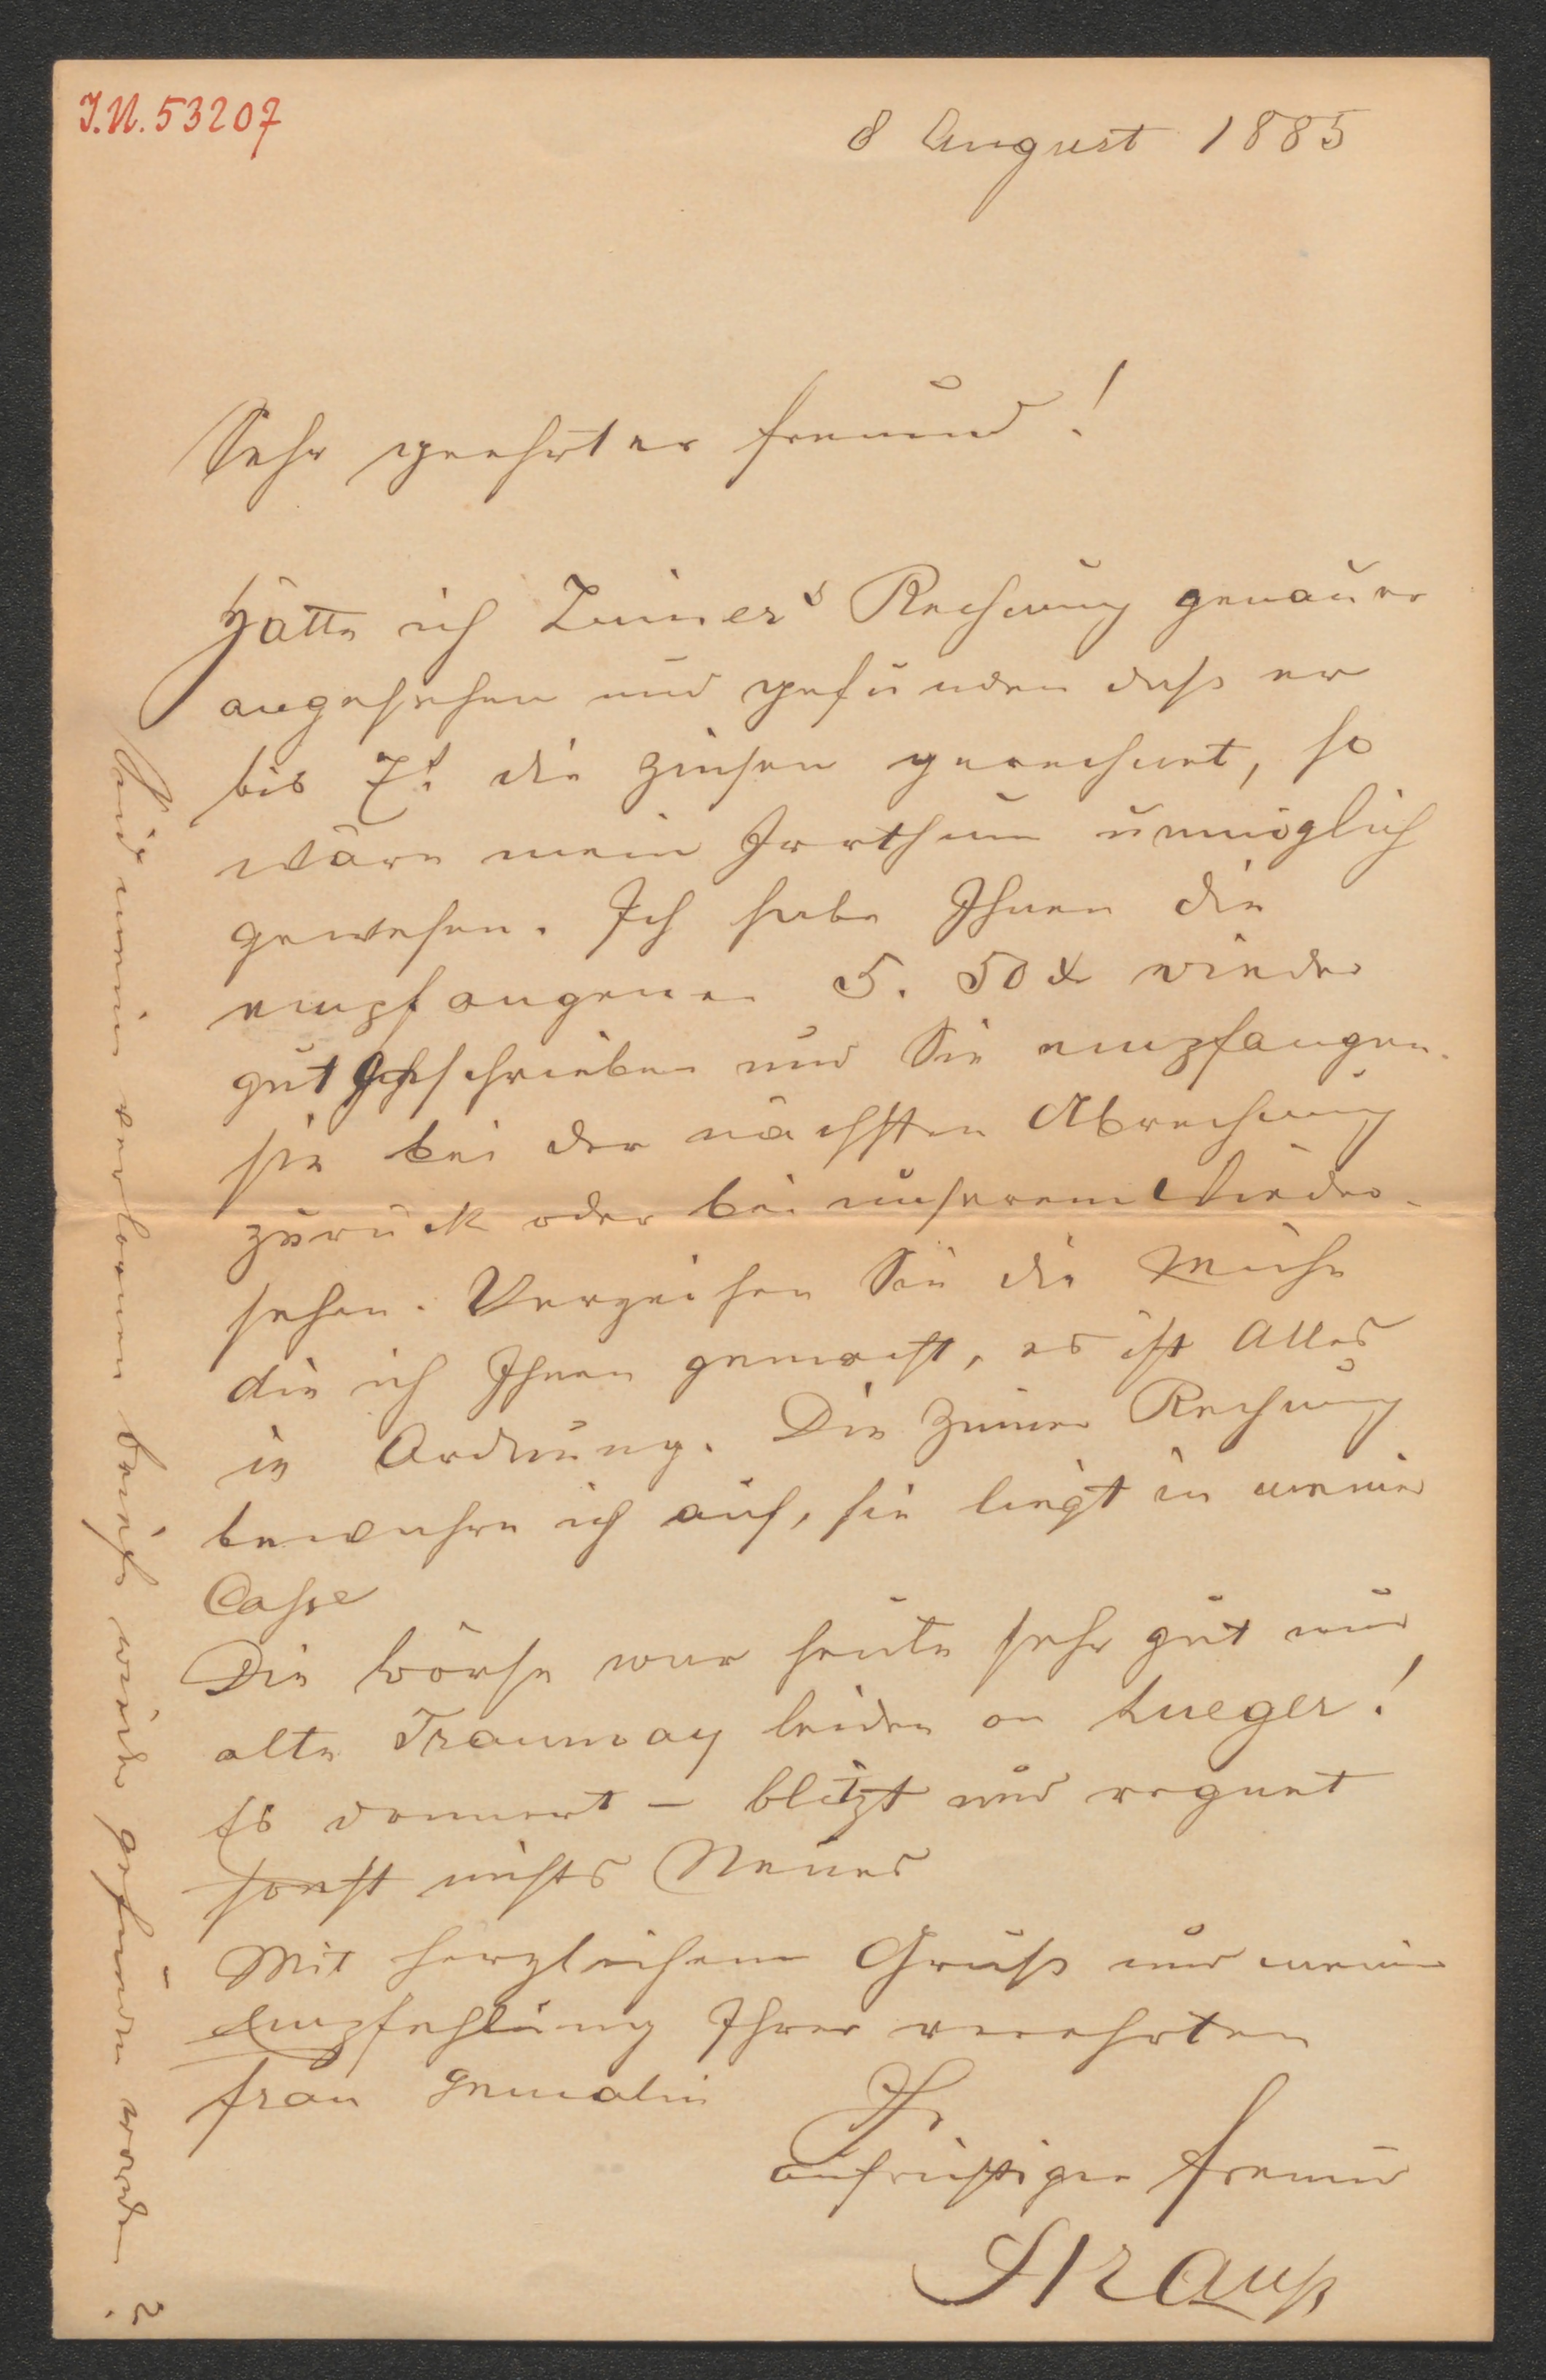 J.N. 53207
8 August 1885
Sehr geehrter Freund!
Hätte ich Zuiner's Rechnung genauer
angesehen und gefunden daß er
bis 7t die Zinsen gerechnet, so
wäre mein Irrthum unmöglich
gewesen. Ich habe Ihnen die
empfangenen 5. 50 x wieder
gut geschrieben und Sie empfangen
sie bei der nächsten Abrechnung
zurück oder bei unserem Wieder-
sehen. Verzeihen Sie die Mühe
die ich Ihnen gemacht, es ist Alles
in Ordnung. Die Zuiner Rechnung
bewahre ich auf, sie liegt in meiner
Casse
Die Börse war heute sehr gut und
alte Tramway leiden an Lueger!
Es donnert – blitzt und regnet
sonst nichts Neues
Mit herzlichem Gruß und meine
Empfehlung Ihrer verehrten
Frau Gemalin
Ihr
aufrichtiger Freund
Strauß
Sind meine verlornen Briefe wieder gefunden worden?